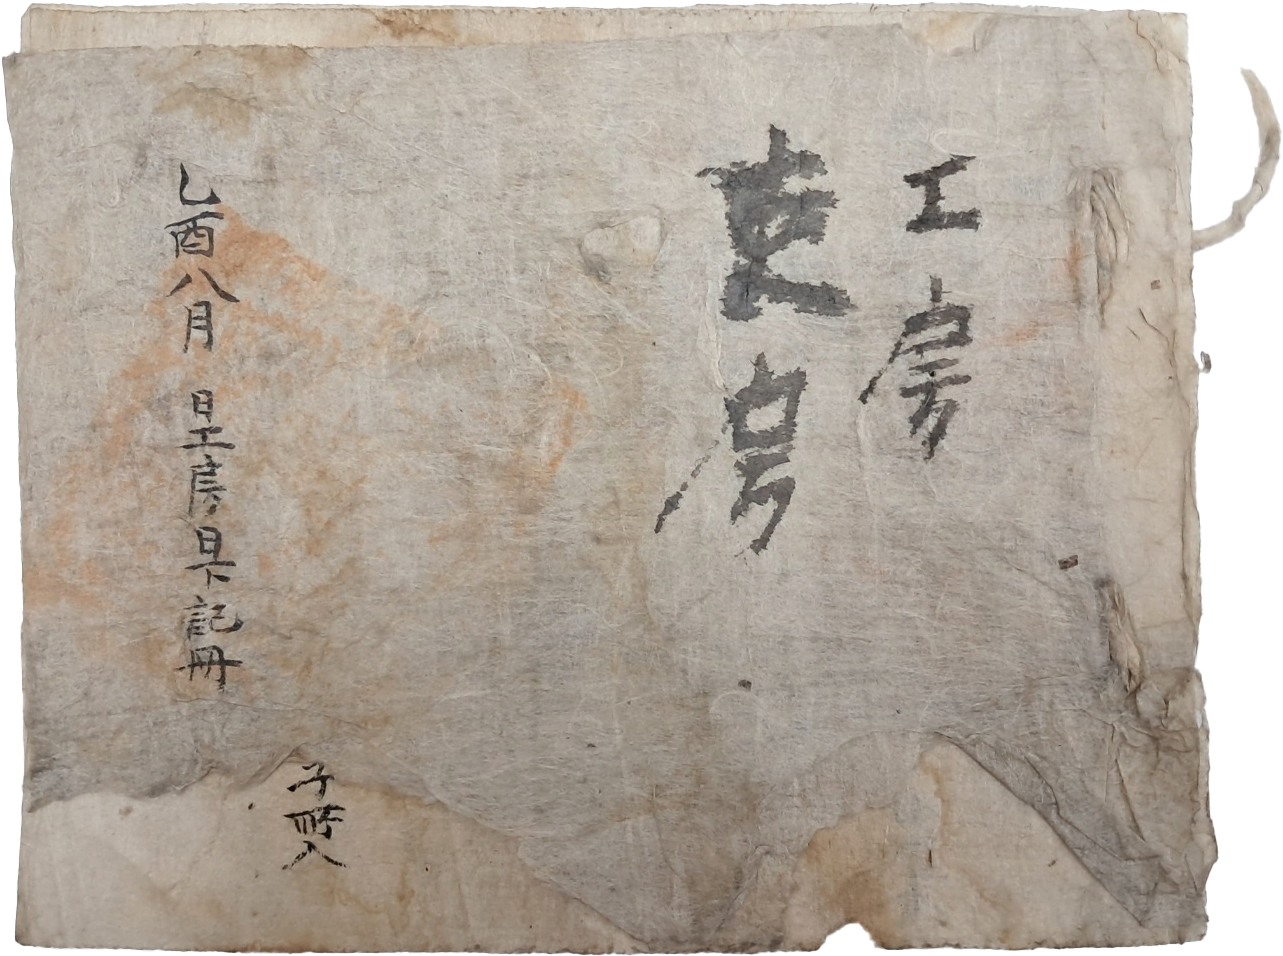 工房
吏房
子所入
乙酉八月 日工房日下記冊